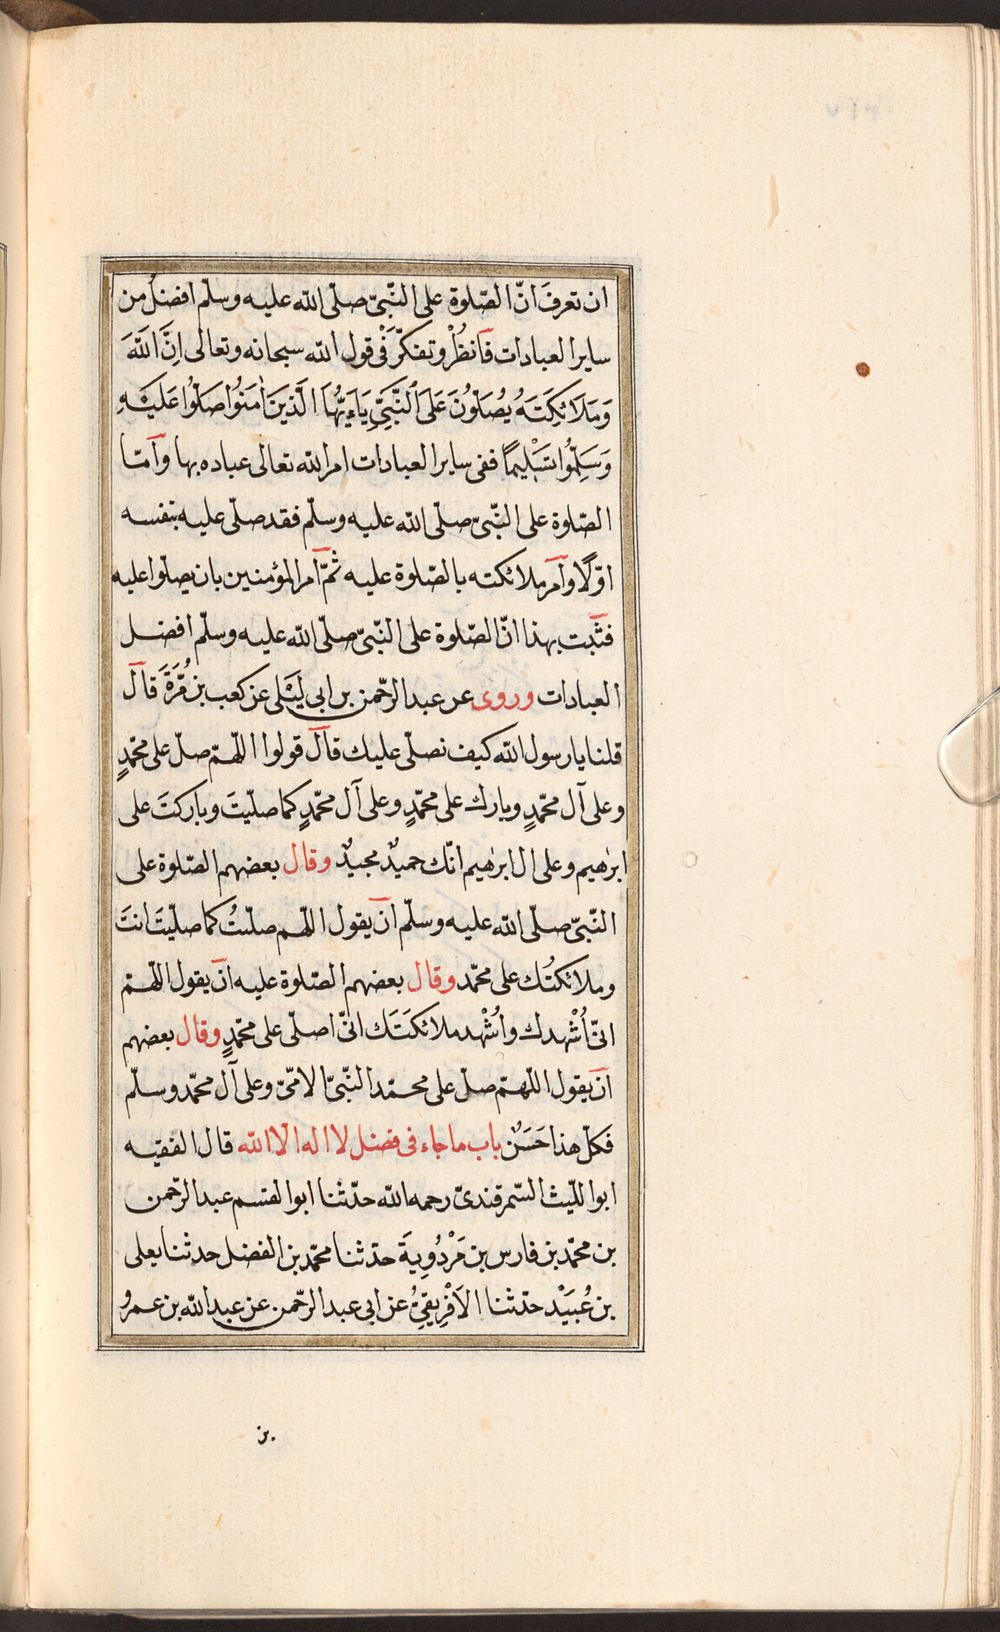 ان تعرفَ انّ الصّلوة على النّبىّ صلّى اللّه عليه وسلّم افضلُ من
ساير العبادات فانظُرْ وتفكّرْ فى قول اللّه سبحانه وتعالى اِنَّ اللّٰهَ
وَمَلَائِكَتَهُ يُصَلّوُنَ عَلَى النَّبِيِّ يَاءَيُّهَا الَّذينَ اٰمَنوُا صَلّوُا عَلَيْهِ
وَسَلِّمُوا تَسْليمًا ففى ساير العبادات امر اللّه تعالى عباده بها وامّا
الصّلوة على النّبىّ صلّى اللّه عليه وسلّم فقد صلّى عليه بنفسه
اوّلًا وامر ملائكته بالصّلوة عليه ثمّ امر المؤمنين بان يصلّوا عليه
فثبت بهذا انّ الصّلوة على النّبىّ صلّى اللّه عليه وسلّم افضل
العبادات وروى عن عبد الرّحمن بن ابى ليْلى عن كعب بن مُرَّةَ قال
قلنا يا رسول اللّه كيف نصلّى عليك قال قولوا اللّهمّ صلّ على محمّدٍ
وعلى آل محمّدٍ وبارك على محمّدٍ وعلى آل محمّدٍ كما صلّيتَ وباركتَ على
ابرٰهيم وعلى ال ابرٰهيم انّك حميدٌ مجيدٌ وقال بعضهم الصّلوة على
النّبىّ صلّى اللّه عليه وسلّم ان يقول اللّهم صلّيتُ كما صلّيتَ انتَ
وملائكتُك على محمّد وقال بعضهم الصّلوة عليه ان يقول اللّهمّ
انّى اُشْهدك واُشْهد ملائكتَك انّى اصلّى على محمّدٍ وقال بعضهم
ان يقول اللّهمّ صلّ على محمّد النّبىّ الامّىّ وعلى آل محمّد وسلّم
فكلّ هذا حَسَنٌ باب ما جاء فى فضل لا اله الّا اللّه قال الفقيه
ابو اللّيث السّمرقندىّ رحمه اللّه حدّثنا ابو القسم عبد الرّحمن
بن محمّد بن فارس بن مَرْدُوِيةَ حدّثنا محمّد بن الفضل حدثنا يعلى
بن عُبَيْد حدّثنا الاَفْرِيقِىُّ عن ابى عبد الرّحمن عن عبد اللّه بن عمرُ